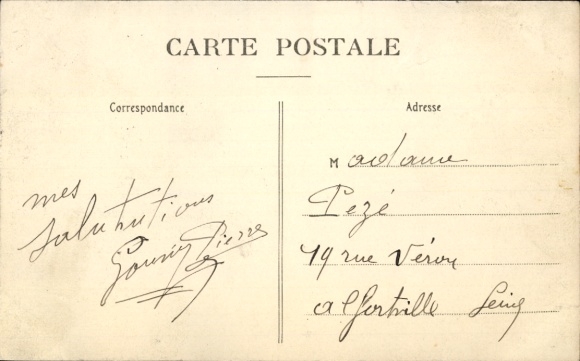 CARTE POSTALE
Correspondance
Adresse
mes
salutations
Pierre
Madame
Pezé
19 rue Véron
alfortville Seine